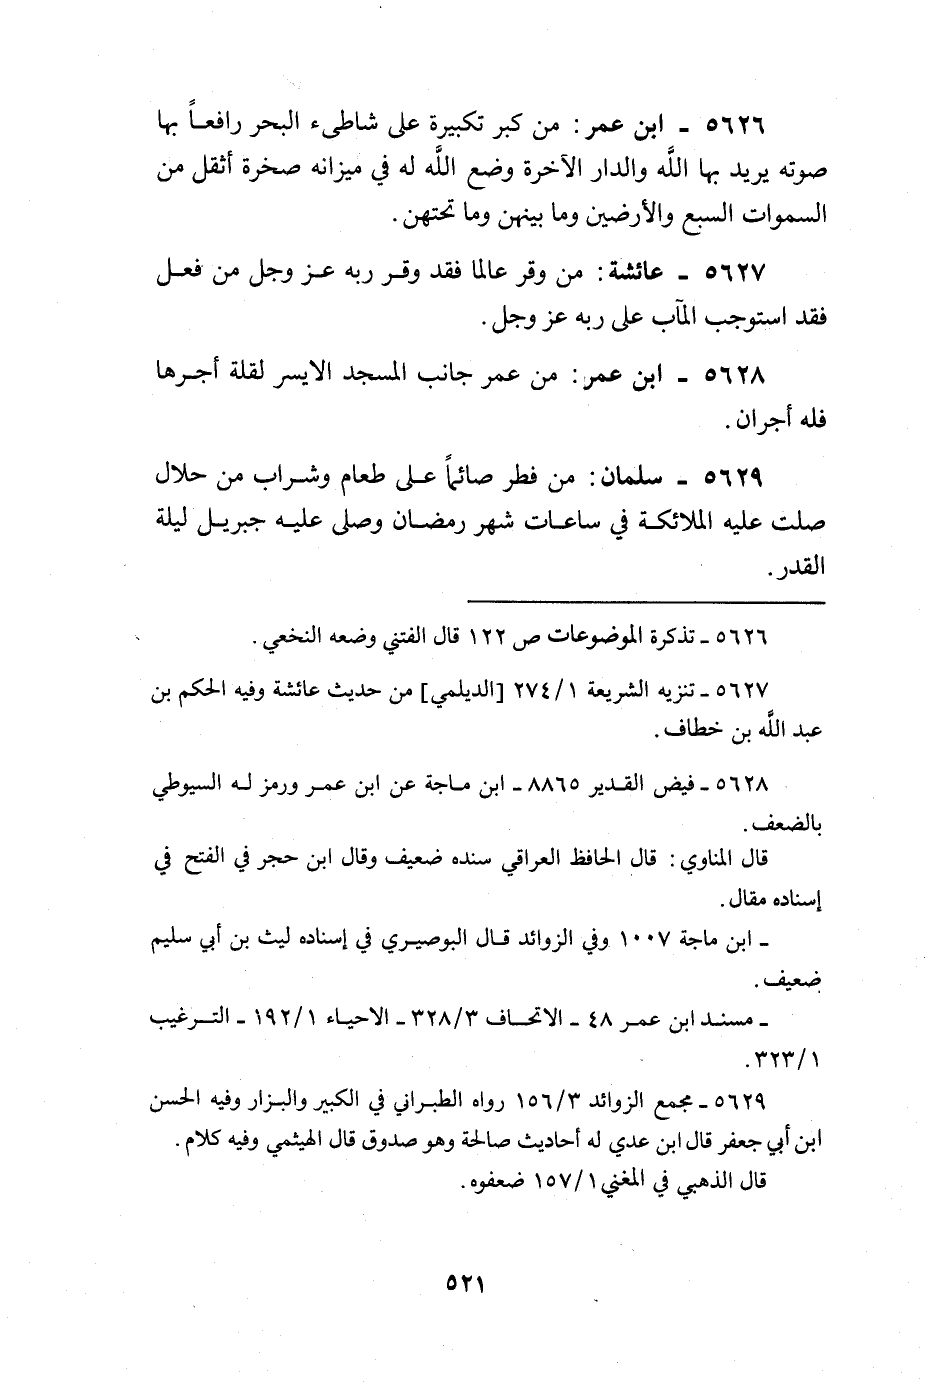 ٥٦٢٦ ـ ابن عمر: من كبر تكبيرة على شاطىء البحر رافعـاً بها
صوته يريد بها اللَّه والدار الآخرة وضع اللَّه له في ميزانه صخرة أثقل من
السموات السبع والأرضين وما بينهن وما تحتهن.
٥٦٢٧ ـ عائشة: من وقر عالما فقد وقـر ربه عـز وجل من فعـل
فقد استوجب المآب على ربه عز وجل.
٥٦٢٨ ـ ابن عمر: من عمر جانب المسجد الايسر لقلة أجـرها
فله أجران.
٥٦٢٩ ـ سلمان: من فطر صائماً عـلى طعام وشـراب من حلال
صلت عليه الملائكـة في ساعـات شهر رمضـان وصلى عليـه جبريـل ليلة
القدر.
٥٦٢٦ ـ تذكرة الموضوعات ص ١٢٢ قال الفتني وضعه النخعي.
٥٦٢٧ ـ تنزيه الشريعة ٢٧٤/١ [الديلمي] من حديث عائشة وفيه الحكم بن
عبد اللَّه بن خطاف.
٥٦٢٨ ـ فيض القـدير ٨٨٦٥ ـ ابن مـاجة عن ابن عمـر ورمز لـه السيوطي
بالضعف.
قال المناوي: قال الحافظ العراقي سنده ضعيف وقال ابن حجر في الفتح في
إسناده مقال.
ـ ابن ماجة ١٠٠٧ وفي الزوائد قـال البوصيـري في إسناده ليث بن أبي سليم
ضعيف.
ـ مسنـد ابن عمـر ٤٨ ـ الاتحـاف ٣٢٨/٣ ـ الاحيـاء ١٩٢/١ ـ التـرغيب
٣٢٣/١.
٥٦٢٩ ـ مجمع الزوائد ١٥٦/٣ رواه الطبـراني في الكبير والبـزار وفيه الحسن
ابن أبي جعفر قال ابن عدي له أحاديث صالحة وهو صدوق قال الهيثمي وفيه كلام.
قال الذهبي في المغني ١٥٧/١ ضعفوه.
٥٢١